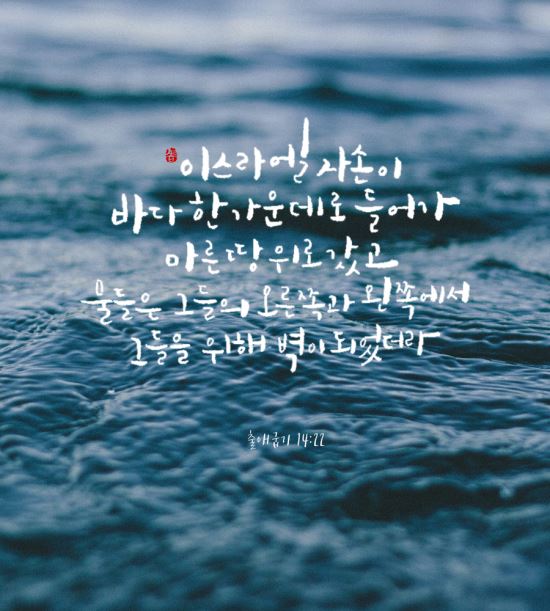 이스라엘 자손이
바다 한가운데로 들어가
마른 땅 위로 갔고
물들은 그들의 오른쪽과 왼쪽에서
그들을 위해 벽이 되었더라
출애굽기 14:22